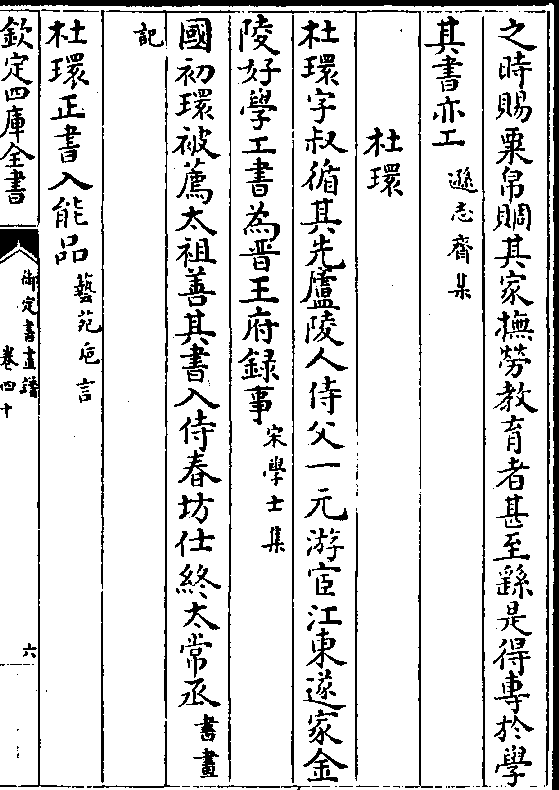 之時賜粟帛賙其家撫勞教育者甚至繇是得專於學
其書亦工遜志齋集
杜環
杜環字叔循其先廬陵人侍父一元游宦江東遂家金
陵好學工書為晉王府録事宋學士集
國初環被薦太祖善其書入侍春坊仕終太常丞書畫
記
杜環正書入能品藝苑巵言
欽定四庫全書
御定書畫譜
卷四十
六